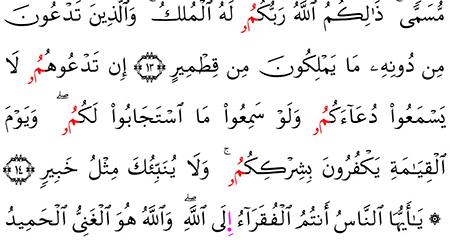 مُّسَمًّىۚ ذَٰلِكُمُ ٱللَّهُ رَبُّكُمُۥ لَهُ ٱلْمُلْكُۚ وَٱلَّذِينَ تَدْعُونَ
مِن دُونِهِۦ مَا يَمْلِكُونَ مِن قِطْمِيرٍ ١٣ إِن تَدْعُوهُمُۥ لَا
يَسْمَعُواْ دُعَآءَكُمُۥ وَلَوْ سَمِعُواْ مَا ٱسْتَجَابُواْ لَكُمُۥۖ وَيَوْمَ
ٱلْقِيَٰمَةِ يَكْفُرُونَ بِشِرْكِكُمُۥۚ وَلَا يُنَبِّئُكَ مِثْلُ خَبِيرٍ ١٤
۞ يَٰٓأَيُّهَا ٱلنَّاسُ أَنتُمُ ٱلْفُقَرَآءُ إِلَى ٱللَّهِۖ وَٱللَّهُ هُوَ ٱلْغَنِىُّ ٱلْحَمِيدُ